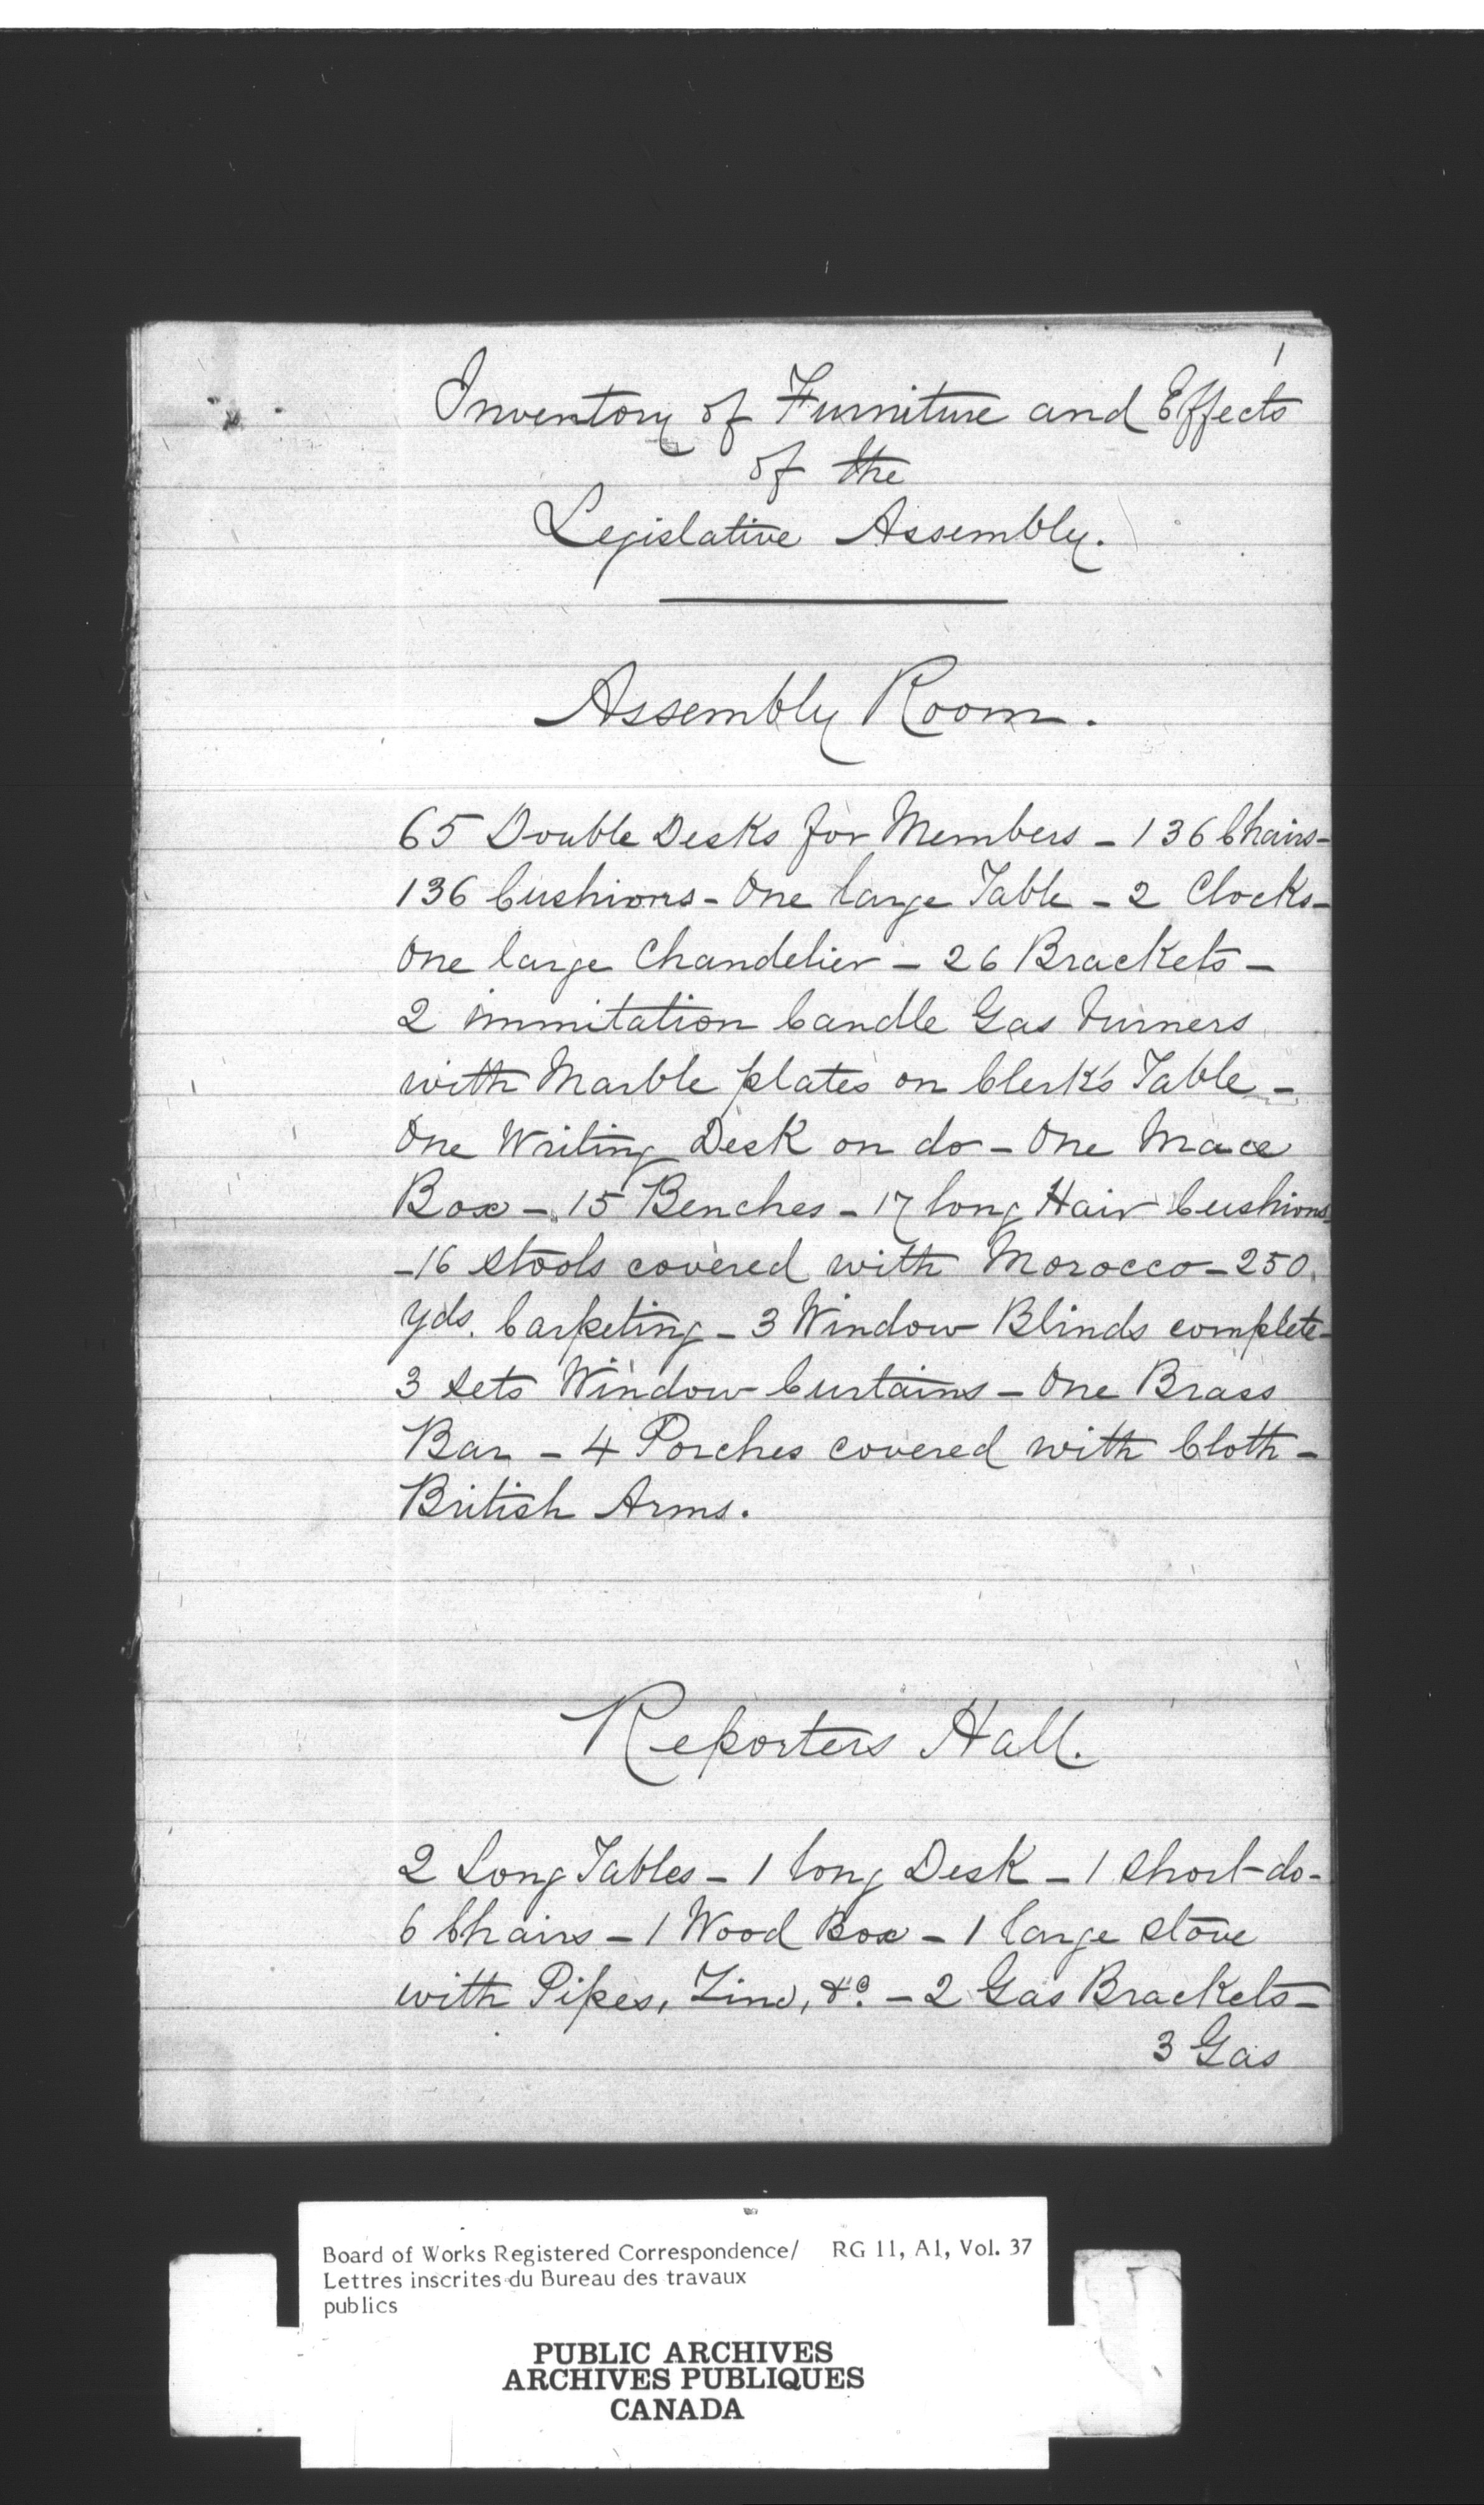 1
Inventory of Furniture and Effects
of the
Legislative Assembly.
Assembly Room.
65 Double Desks for Members - 136 Chairs-
136 Cushions - One large Table - 2 Clocks-
One large Chandelier - 26 Brackets -
2 immitation Candle Gas burners
with Marble plates on Clerk's Table -
One Writing Desk on do - One Mace
Box - 15 Benches - 17 long Hair Cushions
- 16 stools covered with Morocco - 250
yds. Carpeting - 3 Window Blinds complete-
3 sets Window Curtains - One Brass
Bar - 4 Porches covered with Cloth -
British Arms.
Reporters Hall.
2 Long Tables - 1 long Desk - 1 short do-
6 Chairs - 1 Wood Box - 1 large stove
with Pipes, Zinc, &c. - 2 Gas Brackets-
3 Gas
Board of Works Registered Correspondence/ RG 11, A1, Vol. 37
Lettres inscrites du Bureau des travaux
publics
PUBLIC ARCHIVES
ARCHIVES PUBLIQUES
CANADA